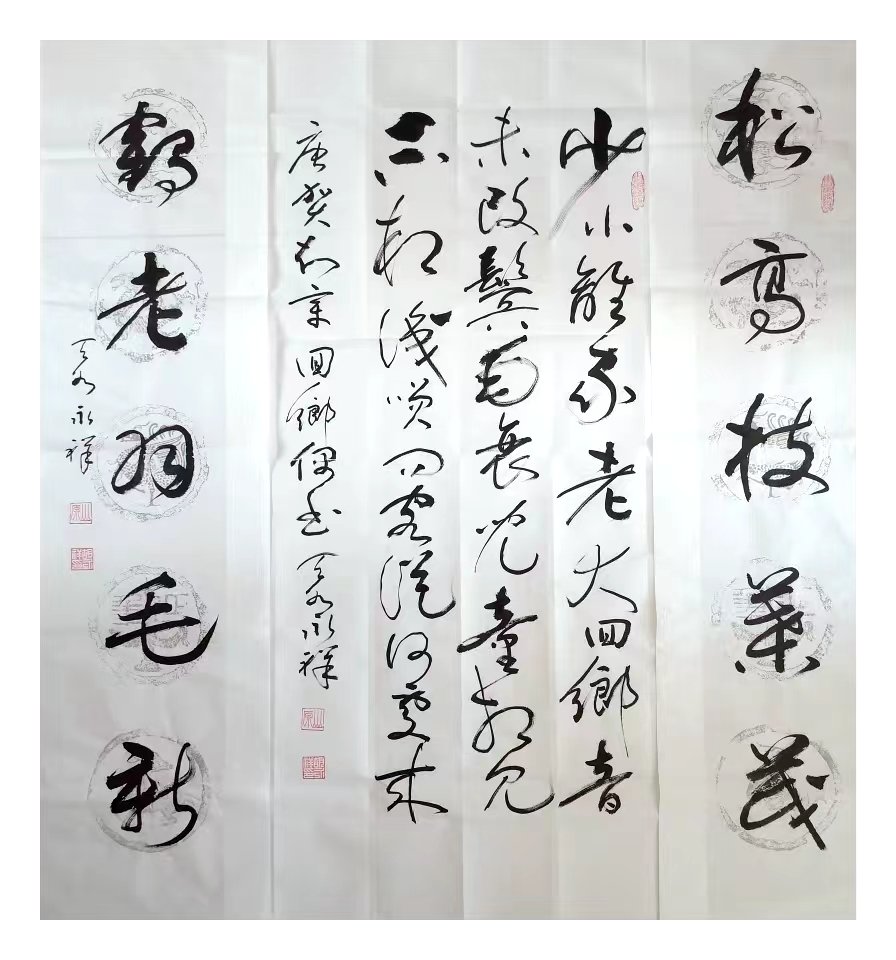 松高枝葉茂
少小離家老大回鄉音
未改鬢毛衰兒童相見
不相識笑問客從何處來
唐賀知章回鄉偶書 永祥
鶴老羽毛新
永祥